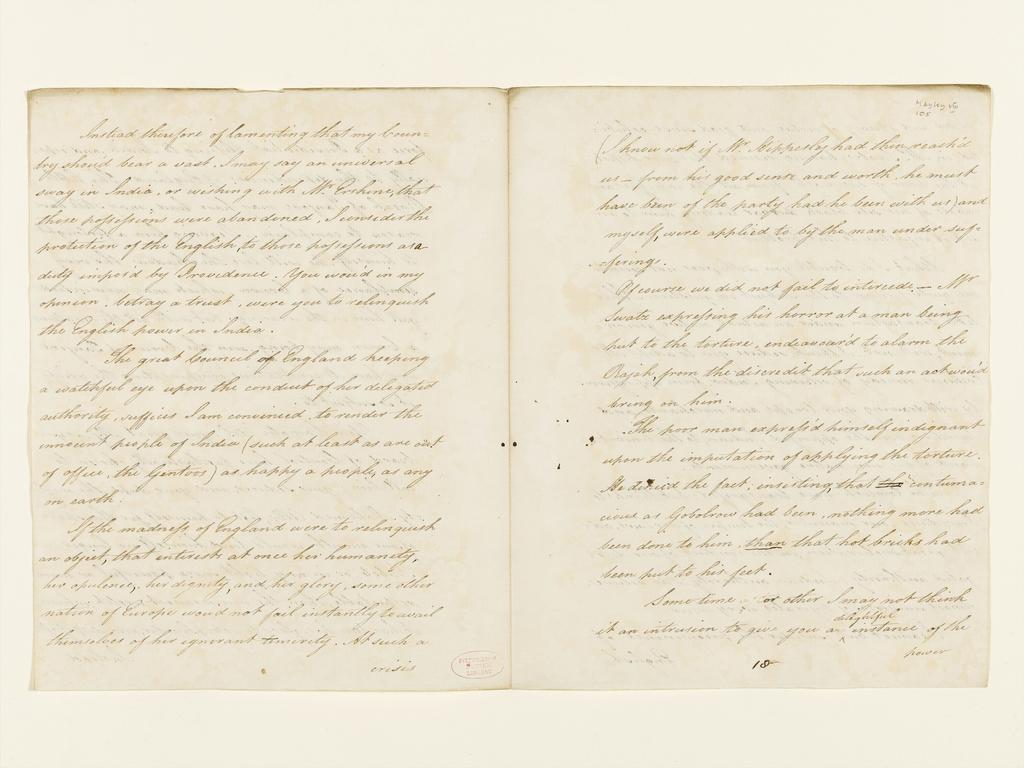 Instead therefore of lamenting that my Coun=
try should bear a vast, I may say an universal
sway in India, or wishing with Mr. Erskine, that
those possessions were abandoned, I consider the
protection of the English to those possessions as a
duty impos'd by Providence. You wou'd in my
opinion, betray a trust, were you to relinquish
the English power in India.
The great Council of England keeping
a watchful eye upon the conduct of her delegated
authority, suffices I am convinced, to render the
innocent people of India (such at least as are out
of office, the Gentoos) as happy a people, as any
on earth.
If the madness of England were to relinquish
an object, that interests at once her humanity,
her opulence, her dignity, and her glory, some other
nation of Europe would not fail instantly to avail
themselves of her ignorant temerity. At such a
crisis
Hayley VII
105
(I know not if Mr. Hippesley had then reach'd
us – from his good sense and worth, he must
have been of the party had he been with us) and
myself, were applied to by the man under suf=
=fering.
Of course we did not fail to intercede. – Mr
Swatz expressing his horror at a man being
put to the torture, endeavour'd to alarm the
Rajah, from the discredit that such an act wou'd
bring on him.
The poor man express'd himself indignant
upon the imputation of applying the torture.
He denied the fact: insisting, that the contuma=
cious as Gobolrow had been, nothing more had
been done to him, than that hot bricks had
been put to his feet.
Some time or other I may not think
delightful
it an intrusion to give you a instance of the
power
18